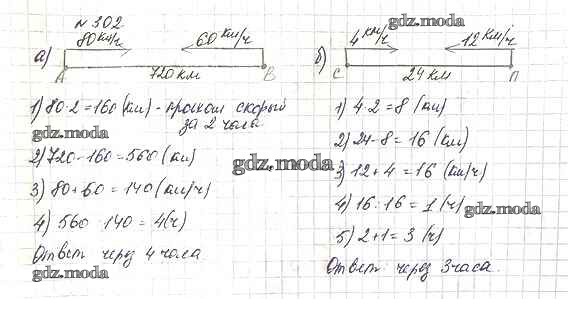 № 302
gdz.moda
а) 80 км/ч 60 км/ч
А 720 км В
1) 80·2=160 (км) - проехал скорый
за 2 часа
gdz.moda
2) 720-160=560 (км)
3) 80+60=140 (км/ч)
4) 560 140=4(ч)
Ответ через 4 часа
gdz.moda
gdz.moda
б) 4 км/ч 12 км/ч
С 24 км П
1) 4·2=8 (км)
2) 24-8=16 (км)
3) 12+4=16 (км/ч)
4) 16:16=1 (ч)
gdz.moda
5) 2+1=3 (ч)
Ответ через 3 часа.